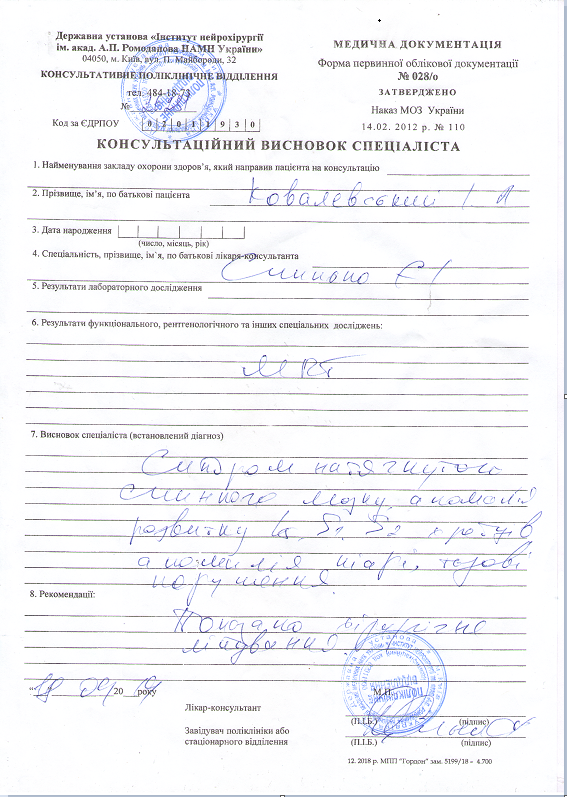 Державна установа «Інститут нейрохірургії
ім. акад. А.П. Ромоданова НАМН України»
04050, м. Київ, вул. П. Майбороди, 32
КОНСУЛЬТАТИВНЕ ПОЛІКЛІНІЧНЕ ВІДДІЛЕННЯ
тел. 484-18-73
№
Код за ЄДРПОУ 0 2 0 1 1 9 3 0
МЕДИЧНА ДОКУМЕНТАЦІЯ
Форма первинної облікової документації
№ 028/о
ЗАТВЕРДЖЕНО
Наказ МОЗ України
14.02. 2012 р. № 110
КОНСУЛЬТАЦІЙНИЙ ВИСНОВОК СПЕЦІАЛІСТА
1. Найменування закладу охорони здоров’я, який направив пацієнта на консультацію
2. Прізвище, ім’я, по батькові пацієнта Ковалевський І Л
3. Дата народження
(число, місяць, рік)
4. Спеціальність, прізвище, ім`я, по батькові лікаря-консультанта
5. Результати лабораторного дослідження
6. Результати функціонального, рентгенологічного та інших спеціальних досліджень:
МРТ
7. Висновок спеціаліста (встановлений діагноз)
Синдром натягнутого
спинного мозку, аномалія
розвитку S1, S2
аномалія кіарі, тазові
порушення
8. Рекомендації:
Показано хірургічне
лікування
20 року
М.П.
Лікар-консультант
(П.І.Б.) (підпис)
Завідувач поліклініки або
стаціонарного відділення (П.І.Б.) (підпис)
12. 2018 р. МПП "Гордон" зам. 5199/18 – 4.700